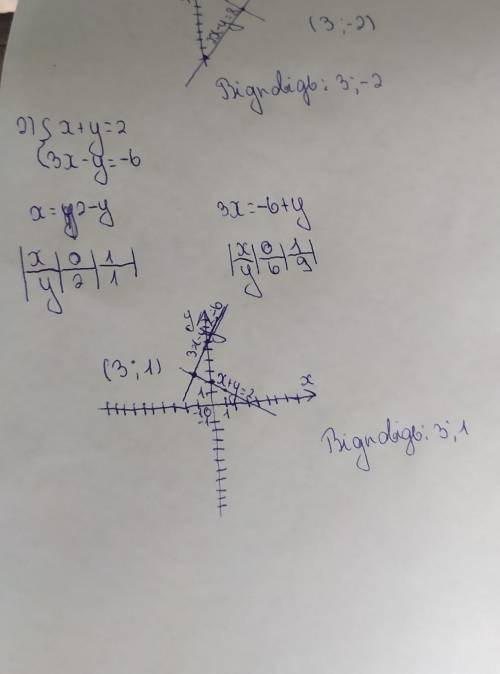 3x-y=8
(3;-2)
Відповідь: 3;-2
2) { x+y=2
3x-y=-6
x=2-y
3x=-6+y
x | 0 | 1
y | 2 | 1
x | 0 | 1
y | 6 | 9
y
3x-y=-6
(3;1)
x+y=2
x
1
-1 0 1
-1
Відповідь: 3;1